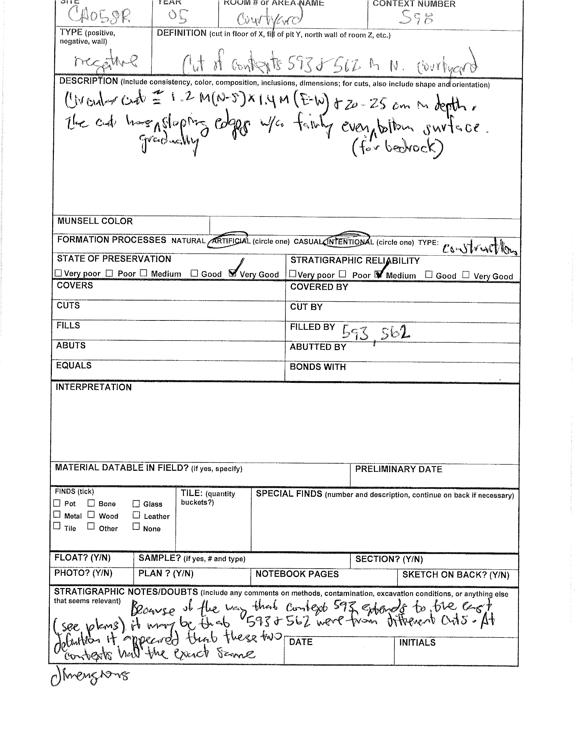 SITE YEAR ROOM # or AREA NAME CONTEXT NUMBER
CA05SR 05 Courtyard 598
TYPE (positive, negative, wall) DEFINITION (cut in floor of X, fill of pit Y, north wall of room Z, etc.)
negative Cut of contexts 593 & 562 in N. courtyard
DESCRIPTION (Include consistency, color, composition, inclusions, dimensions; for cuts, also include shape and orientation)
Circular cut ≅ 1.2 M (N-S) x 1.4 M (E-W) & 20-25 cm in depth.
The cut has gradually sloping edges w/a fairly even bottom surface.
(for bedrock)
MUNSELL COLOR
FORMATION PROCESSES NATURAL ARTIFICIAL (circle one) CASUAL INTENTIONAL (circle one) TYPE: Construction
STATE OF PRESERVATION STRATIGRAPHIC RELIABILITY
Very poor Poor Medium Good Very Good Very poor Poor Medium Good Very Good
COVERS COVERED BY
CUTS CUT BY
FILLS FILLED BY 593, 562
ABUTS ABUTTED BY
EQUALS BONDS WITH
INTERPRETATION
MATERIAL DATABLE IN FIELD? (if yes, specify) PRELIMINARY DATE
FINDS (tick) TILE: (quantity buckets?) SPECIAL FINDS (number and description, continue on back if necessary)
Pot Bone Glass
Metal Wood Leather
Tile Other None
FLOAT? (Y/N) SAMPLE? (if yes, # and type) SECTION? (Y/N)
PHOTO? (Y/N) PLAN ? (Y/N) NOTEBOOK PAGES SKETCH ON BACK? (Y/N)
STRATIGRAPHIC NOTES/DOUBTS (Include any comments on methods, contamination, excavation conditions, or anything else
that seems relevant) Because of the way that context 593 extends to the east
(see plans) it may be that 593 & 562 were from different cuts. At
definition it appeared that these two
contexts had the exact same
dimensions
DATE INITIALS